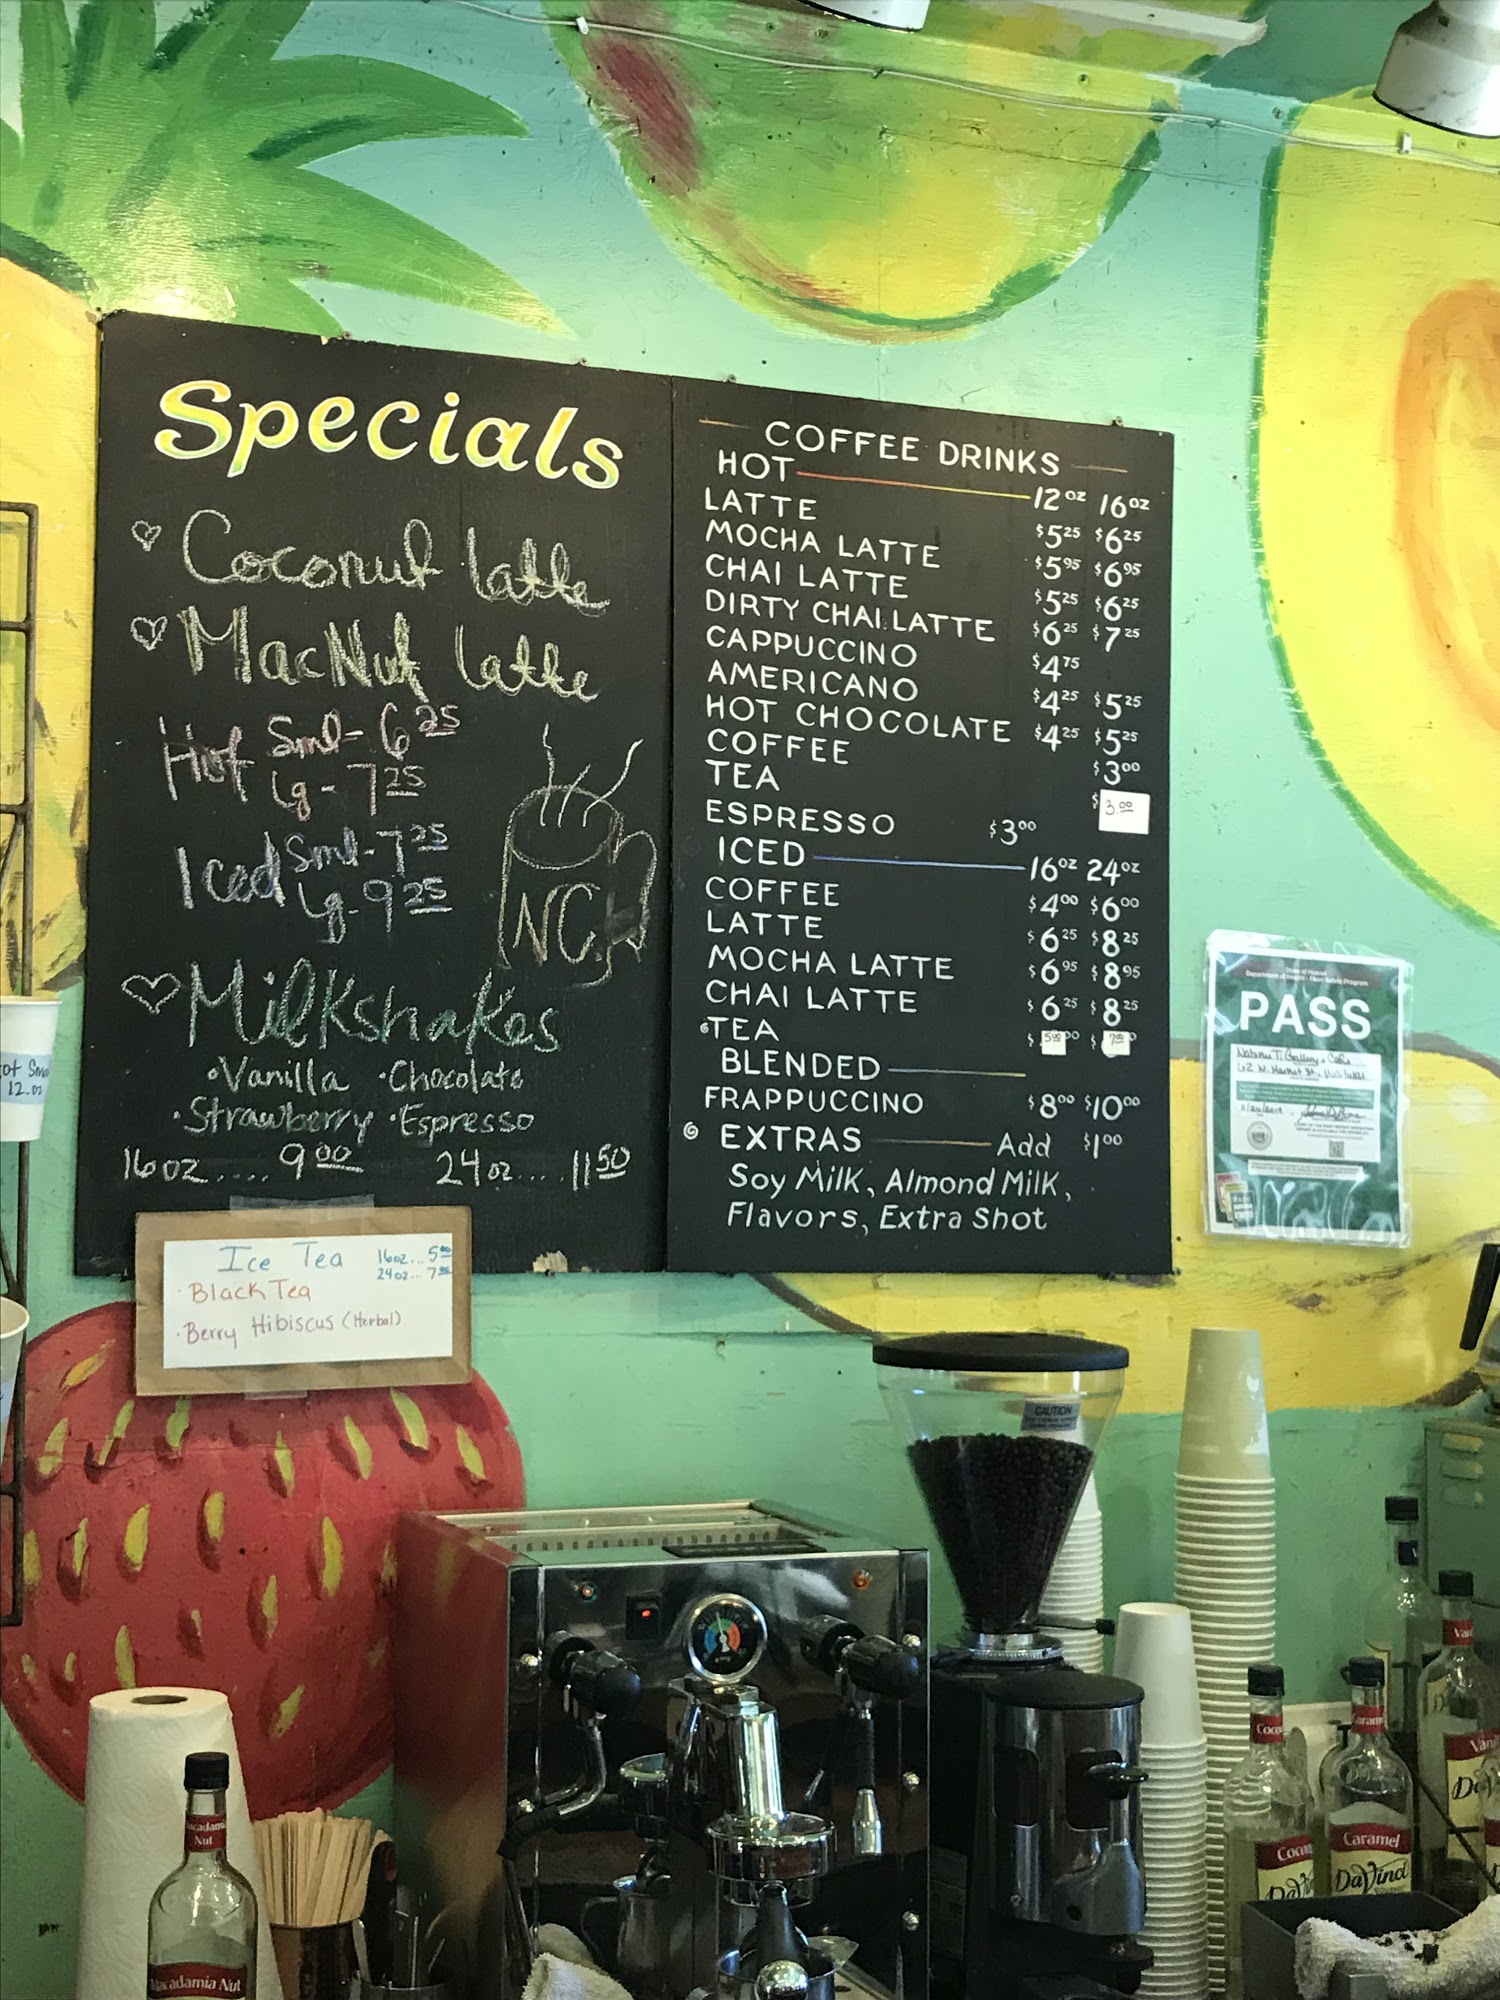 Specials
Coconut Latte
MacNut Latte
Hot Sml - 6 25
Lg - 7 25
Iced Sml - 7 25
Lg - 9 25
NC.
Milkshakes
· Vanilla · Chocolate
· Strawberry · Espresso
16oz .... 9 00 24oz .... 11 50
Ice Tea 16oz... 5 00
24oz... 7 00
· Black Tea
· Berry Hibiscus (Herbal)
COFFEE DRINKS
HOT 12oz 16oz
LATTE $5 25 $6 25
MOCHA LATTE $5 95 $6 95
CHAI LATTE $5 25 $6 25
DIRTY CHAI LATTE $6 25 $7 25
CAPPUCCINO $4 75
AMERICANO $4 25 $5 25
HOT CHOCOLATE $4 25 $5 25
COFFEE $3 00
TEA $3.00
ESPRESSO $3 00
ICED 16oz 24oz
COFFEE $4 00 $6 00
LATTE $6 25 $8 25
MOCHA LATTE $6 95 $8 95
CHAI LATTE $6 25 $8 25
TEA $5 00 $7 00
BLENDED
FRAPPUCCINO $8 00 $10 00
EXTRAS Add $1 00
Soy Milk, Almond Milk,
Flavors, Extra Shot
State of Hawaii
Department of Health - Food Safety Program
PASS
62 N. Market St, Wailuku
12.oz
CAUTION
Macadamia
Nut
Macadamia Nut
Caramel
DaVinci